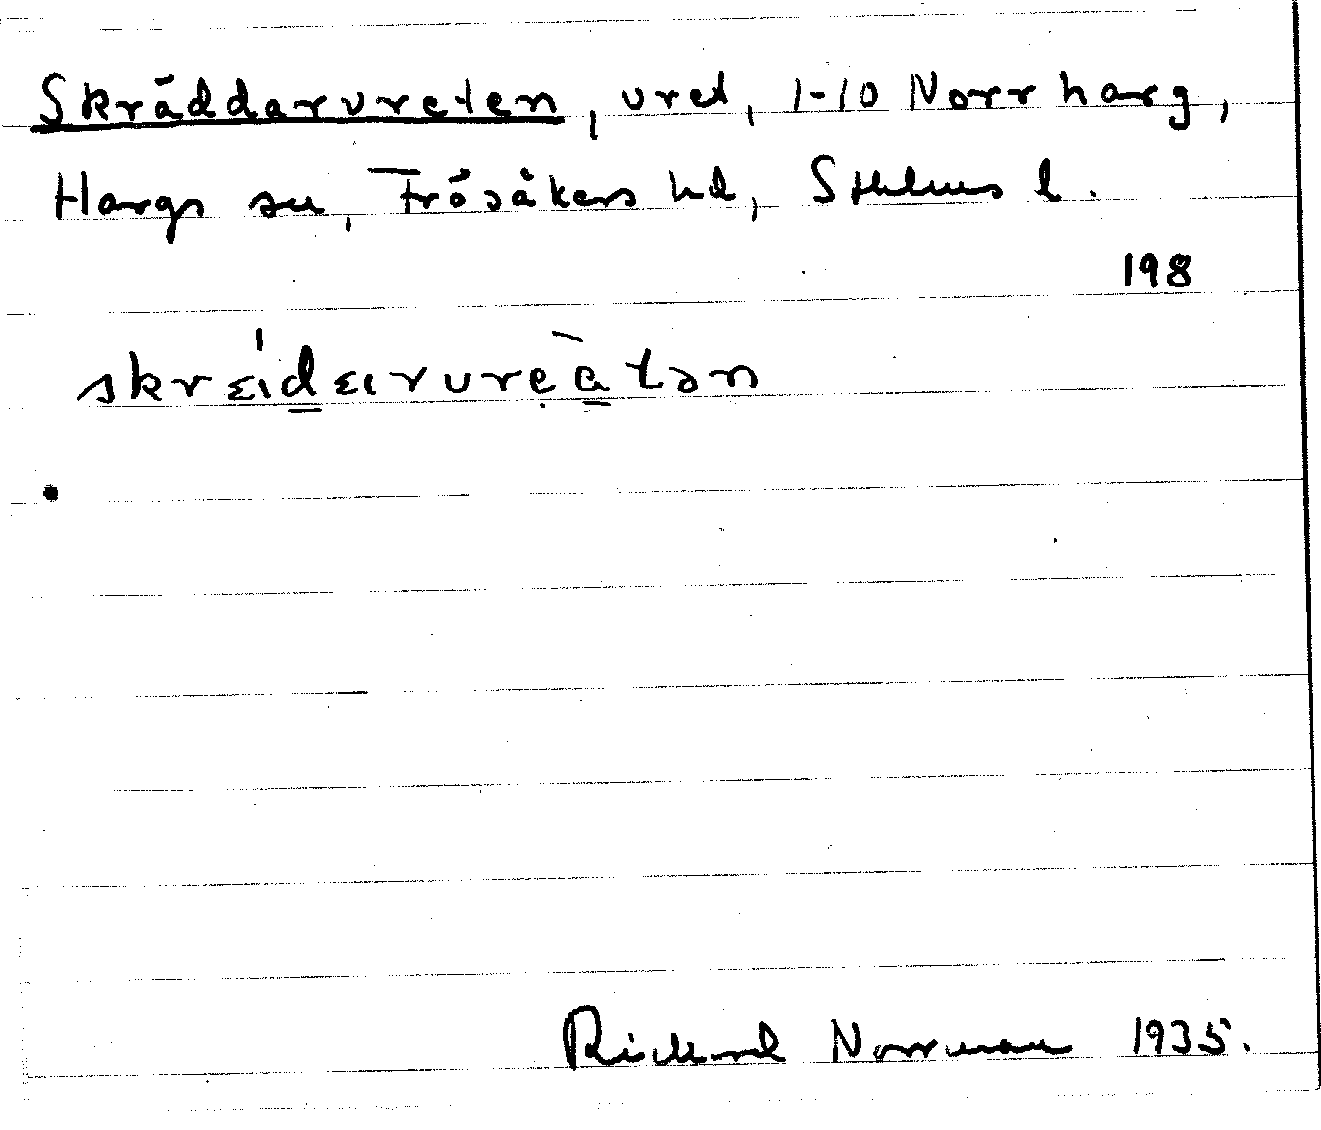 Skräddarvreten, vret, 1-10 Norrharg,
Hargs sn, Frösåkers hd, Sthlms l.
198
Rickard Norrman 1935.